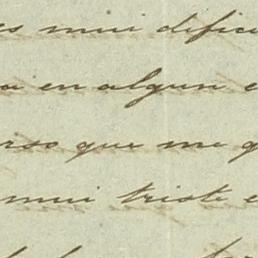 es mui dificu
a en algun e
rso que me g
mui triste e